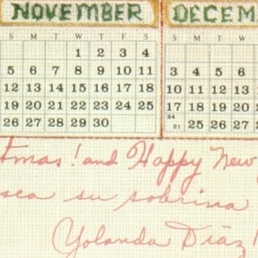 NOVEMBER
S M T W T F S
1 2 3 4
5 6 7 8 9 10 11
12 13 14 15 16 17 18
19 20 21 22 23 24 25
26 27 28 29 30
DECEM
S M T W
3 4 5 6
10 11 12 13
17 18 19 20
24/31 25 26 27
tmas! and Happy New
sea su sobrina
Yolanda Díaz!